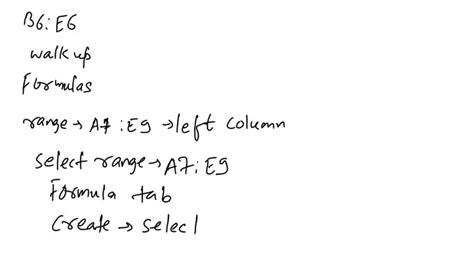 B6:E6
walk up
Formulas
range → A7:E9 → left column
select range → A7:E9
Formula tab
Create → Selec